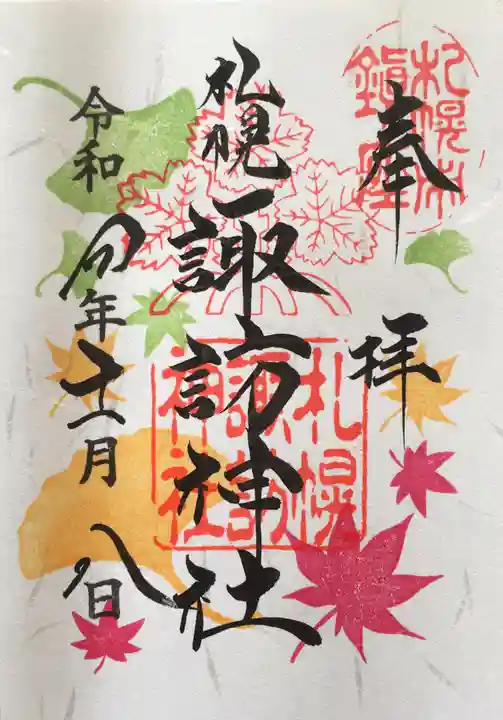 奉拝
札幌諏訪神社
令和四年十一月八日
札幌市鎮座
札幌諏訪神社